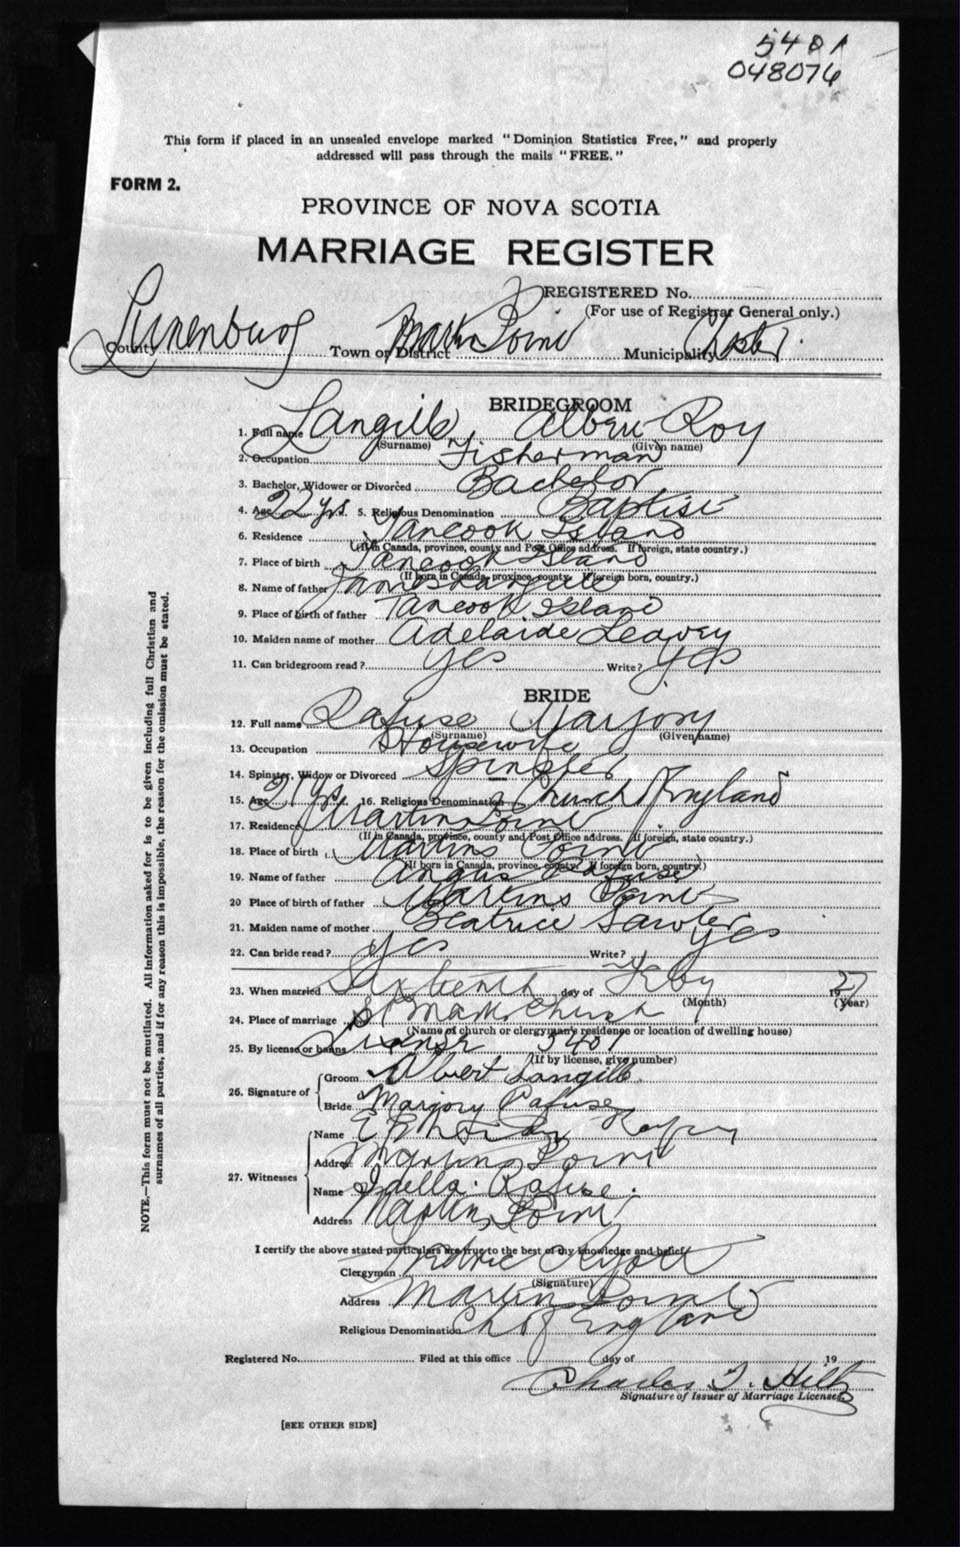 5401
048076
This form if placed in an unsealed envelope marked "Dominion Statistics Free," and properly
addressed will pass through the mails "FREE."
FORM 2.
PROVINCE OF NOVA SCOTIA
MARRIAGE REGISTER
REGISTERED No.
(For use of Registrar General only.)
County Lunenburg Town or District Martin Point Municipality Chester
BRIDEGROOM
1. Full name Langille Albert Roy
(Surname) (Given name)
2. Occupation Fisherman
3. Bachelor, Widower or Divorced Bachelor
4. Age 22 yrs. 5. Religious Denomination Baptist
6. Residence Tancook Island
(If in Canada, province, county and Post Office address. If foreign, state country.)
7. Place of birth Tancook Island
(If born in Canada, province, county. If foreign born, country.)
8. Name of father James Langille
9. Place of birth of father Tancook Island
10. Maiden name of mother Adelaide Leavey
11. Can bridegroom read? Yes Write? Yes
BRIDE
12. Full name Rafuse Marjory
(Surname) (Given name)
13. Occupation Housewife
14. Spinster, Widow or Divorced Spinster
15. Age 21 yrs. 16. Religious Denomination Church of England
17. Residence Martins Point
(If in Canada, province, county and Post Office address. If foreign, state country.)
18. Place of birth Martins Point
(If born in Canada, province, county. If foreign born, country.)
19. Name of father Angus Rafuse
20 Place of birth of father Martins Point
21. Maiden name of mother Beatrice Sawler
22. Can bride read? Yes Write? Yes
23. When married Sixteenth day of Feby 1927
(Month) (Year)
24. Place of marriage St Marks Church
(Name of church or clergyman's residence or location of dwelling house)
25. By license or banns License 5401
(If by license, give number)
26. Signature of Groom Albert Langille.
Bride Marjory Rafuse
27. Witnesses Name
Address Martins Point
Name Idella Rafuse.
Address Martins Point
I certify the above stated particulars are true to the best of my knowledge and belief.
Clergyman Fredric Ryott
(Signature)
Address Martins Point
Religious Denomination Ch of England
Registered No. Filed at this office day of 19
Charles T. Hiltz
Signature of Issuer of Marriage Licenses.
[SEE OTHER SIDE]
NOTE.—This form must not be mutilated. All information asked for is to be given including full Christian and
surnames of all parties, and if for any reason this is impossible, the reason for the omission must be stated.